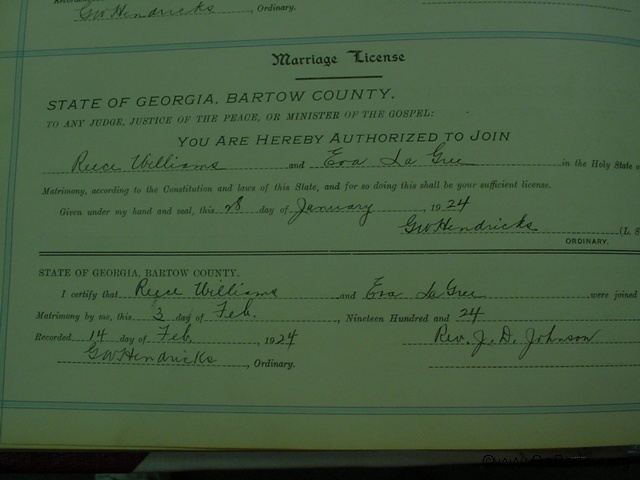 GW Hendricks, Ordinary.
Marriage License
STATE OF GEORGIA, BARTOW COUNTY.
TO ANY JUDGE, JUSTICE OF THE PEACE, OR MINISTER OF THE GOSPEL:
YOU ARE HEREBY AUTHORIZED TO JOIN
Reece Williams and Eva La Gree in the Holy State
Matrimony, according to the Constitution and laws of this State, and for so doing this shall be your sufficient license.
Given under my hand and seal, this day of January, 1924
GW Hendricks (L. S
ORDINARY.
STATE OF GEORGIA, BARTOW COUNTY.
I certify that Reece Williams and Eva La Gree were joined
Matrimony by me, this 3 day of Feb., Nineteen Hundred and 24
Recorded 14 day of Feb, 1924 Rev. J. D. Johnson
GW Hendricks, Ordinary.